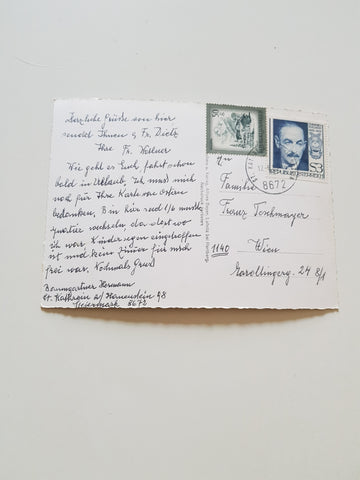 Herzliche Grüße von hier
sendet Ihnen & Fr. Dietz
Ihre Fr. Wallner
Wie geht es Euch fahrt schon
bald in Urlaub, Ich muss mich
noch für Ihre Karte von Ostern
bedanken, Bin hier seit 1/6 musste
Quartier wechseln da dort wo
ich war, Kinderregen eingetroffen
ist und kein Zimmer für mich
frei war. Nochmals Gruß
Baumgartner Hermann
St. Kathrein a/Hauenstein 98
Steiermark 8672
S5.00
REPUBLIK ÖSTERREICH
S3
8672
An
Familie
Franz Tonkmayer
1140 Wien
Karollingerg. 24 8/1